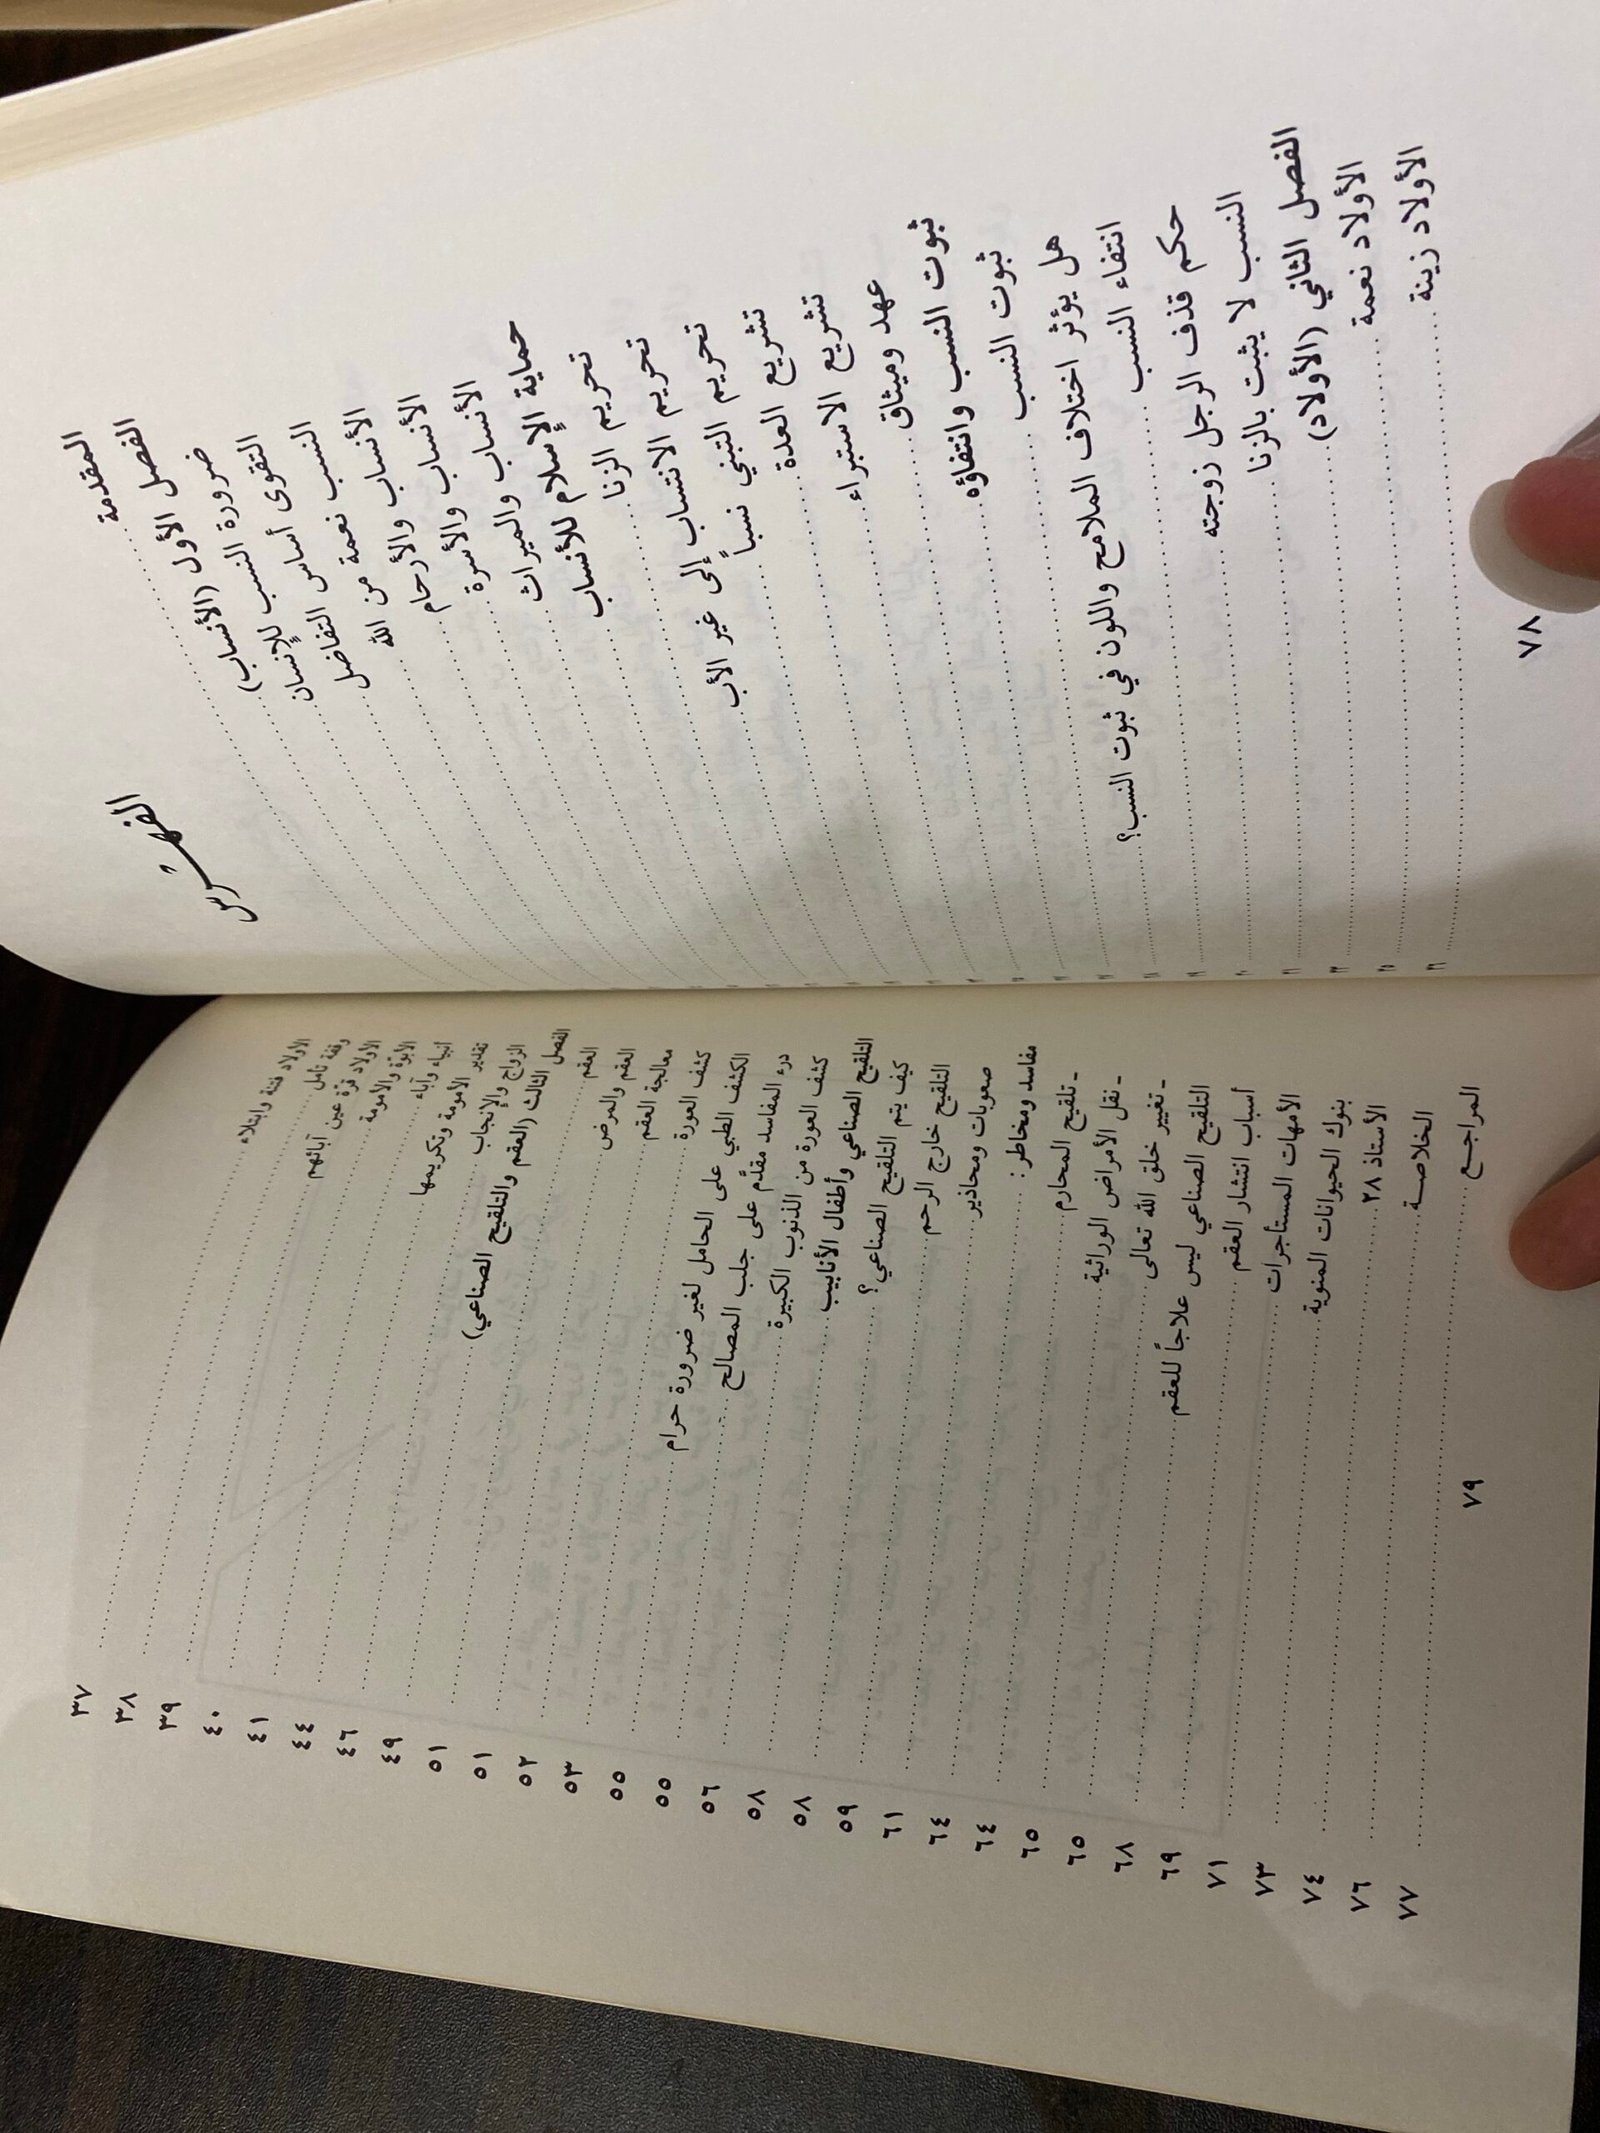 الفهرس
المقدمة
الفصل الأول (الأنساب)
ضرورة النسب للإنسان
التقوى أساس التفاضل
النسب نعمة من الله
الأنساب والأرحام
الأنساب والأسرة
الأنساب والميراث
حماية الإسلام للأنساب
تحريم الزنا
تحريم الانتساب إلى غير الأب
تحريم التبني نسباً
تشريع العدة
تشريع الاستبراء
عهد وميثاق
ثبوت النسب وانتفاؤه
ثبوت النسب
هل يؤثر اختلاف الملامح واللون في ثبوت النسب؟
انتفاء النسب
حكم قذف الرجل زوجته
النسب لا يثبت بالزنا
الفصل الثاني (الأولاد)
الأولاد نعمة
الأولاد زينة
٧٨
الأولاد فتنة وابتلاء ٣٧
وقفة تأمل ٣٨
الأولاد قرّة عين آبائهم ٣٩
الأبوّة والأمومة ٤٠
أنبياء وآباء ٤١
تقدير الأمومة وتكريمها ٤٤
الزواج والإنجاب ٤٦
الفصل الثالث (العقم والتلقيح الصناعي) ٤٩
العقم ٥١
العقم والمرض ٥١
معالجة العقم ٥٢
كشف العورة ٥٣
الكشف الطبي على الحامل لغير ضرورة حرام ٥٥
درء المفاسد مقدَّم على جلب المصالح ٥٥
كشف العورة من الذنوب الكبيرة ٥٦
التلقيح الصناعي وأطفال الأنابيب ٥٨
كيف يتم التلقيح الصناعي؟ ٥٨
التلقيح خارج الرحم ٥٩
صعوبات ومحاذير ٦١
مفاسد ومخاطر: ٦٤
ـ تلقيح المحارم ٦٤
ـ نقل الأمراض الوراثية ٦٥
ـ تغيير خلق الله تعالى ٦٥
التلقيح الصناعي ليس علاجاً للعقم ٦٨
أسباب انتشار العقم ٦٩
الأمهات المستأجرات ٧١
بنوك الحيوانات المنوية ٧٣
الأستاذ ٢٨ ٧٤
الخلاصة ٧٦
المراجع ٧٧
٧٩